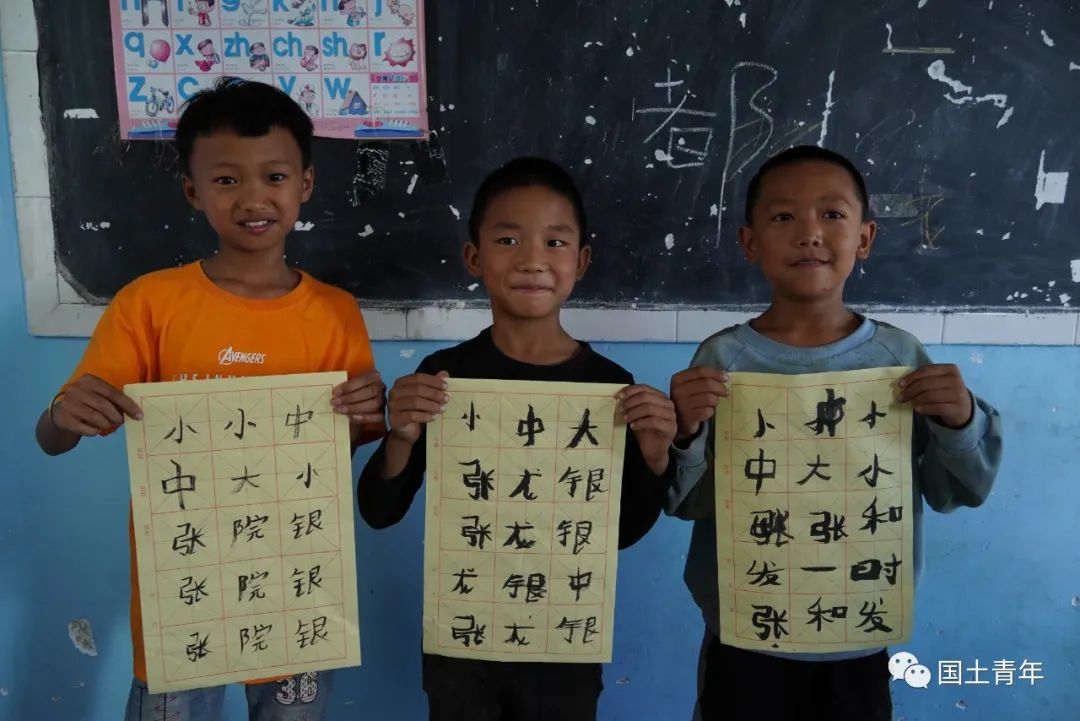 q x zh ch sh r
z c s y w
都
AVENGERS
小 小 中
中 大 小
张 院 银
张 院 银
张 院 银
小 中 大
张 尤 银
张 尤 银
尤 银 中
张 尤 银
小 中 小
中 大 小
张 张 和
发 一 时
张 和 发
国土青年